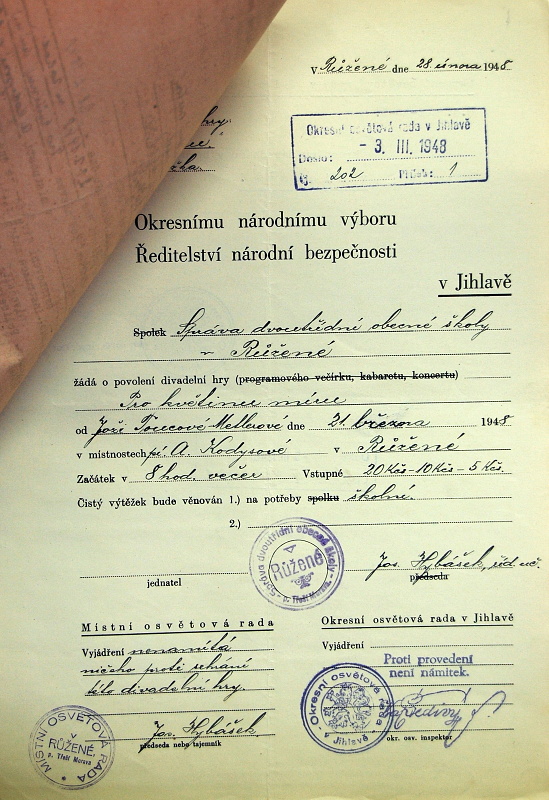 V Růžené dne 28. února 1948
hry.
Okresní osvětová rada v Jihlavě
Došlo: - 3. III. 1948
Čj. 202 Příloh: 1
Okresnímu národnímu výboru
Ředitelství národní bezpečnosti
v Jihlavě
Spolek Správa dvoutřídní obecné školy
v Růžené
žádá o povolení divadelní hry (programového večírku, kabaretu, koncertu)
Pro květinu
od Joži dne 21. března 1948
v místnostech pí. A. Kodysové v Růžené
Začátek v 8 hod. večer Vstupné 20 Kčs-10 Kčs-5 Kčs.
Čistý výtěžek bude věnován 1.) na potřeby spolku školní.
2.)
Správa dvoutřídní obecné školy
Růžené
p. Třešť Morava
Jos. Hybášek, říd. uč.
jednatel předseda
Místní osvětová rada
Okresní osvětová rada v Jihlavě
Vyjádření nenamítá
ničeho proti sehrání
této divadelní hry.
Vyjádření
Proti provedení
není námitek.
Okresní osvětová rada
v Jihlavě
Jos. Hybášek
předseda nebo tajemník
okr. osv. inspektor
MÍSTNÍ OSVĚTOVÁ RADA
V
RŮŽENÉ,
p. Třešť Morava